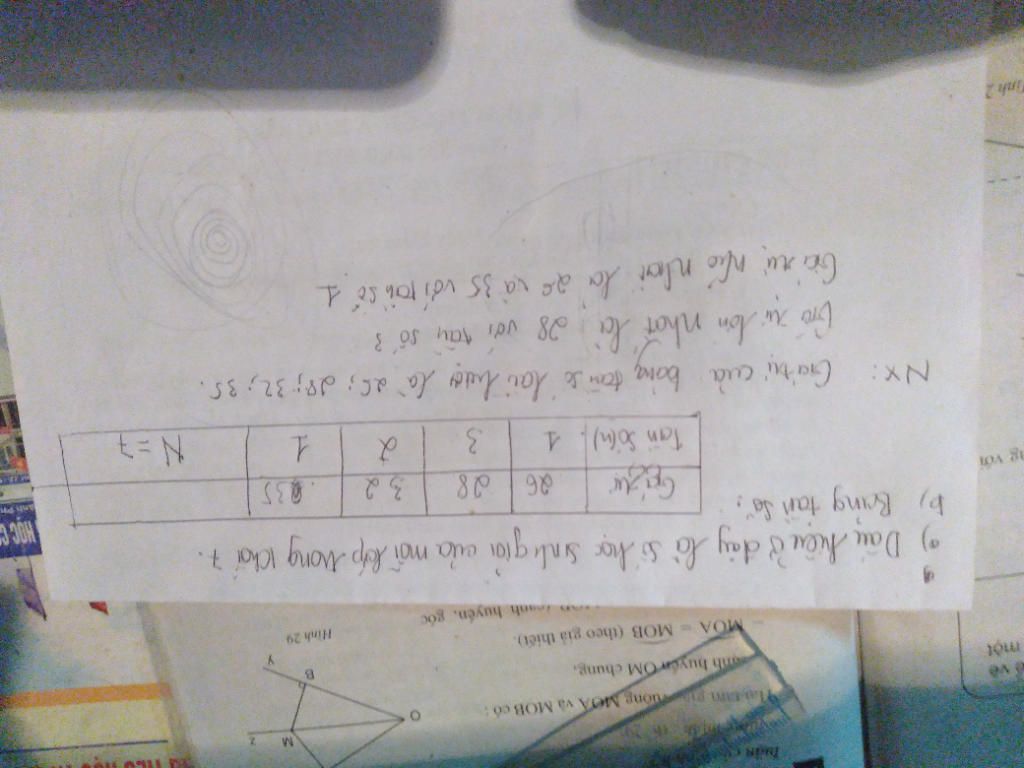 9
a) Dấu hiệu ở đây là số học sinh giỏi của mỗi lớp trong khối 7.
b) Bảng tần số:
Giá trị (x) 26 28 32 35
Tần số (n) 1 3 2 1 N = 7
NX: Giá trị của bảng tần số lần lượt là 26; 28; 32; 35.
Giá trị lớn nhất là 28 với tần số 3
Giá trị nhỏ nhất là 26 và 35 với tần số 1.
Hình 29
MOA = MOB (theo giả thiết).
cạnh huyền OM chung.
vuông MOA và MOB có :
O
B
M
y
z
HỌC